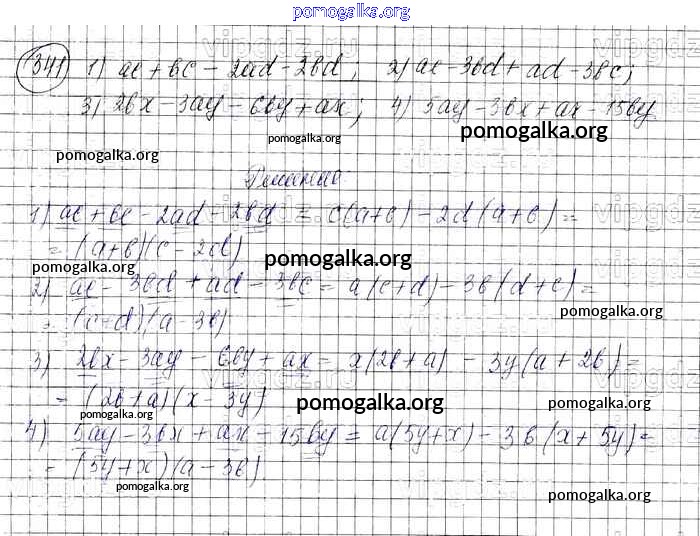 pomogalka.org
341 1) ac + bc - 2ad - 2bd; 2) ac - 3bd + ad - 3bc;
3) 2bx - 3ay - 6by + ax; 4) 5ay - 3bx + ax - 15by
pomogalka.org pomogalka.org
pomogalka.org
Решение:
1) ac + bc - 2ad - 2bd = c(a+b) - 2d(a+b) =
= (a+b)(c - 2d)
pomogalka.org
pomogalka.org
2) ac - 3bd + ad - 3bc = a(c+d) - 3b(d+c) =
= (c+d)(a - 3b)
pomogalka.org
3) 2bx - 3ay - 6by + ax = x(2b+a) - 3y(a + 2b) =
= (2b+a)(x - 3y)
pomogalka.org
pomogalka.org
4) 5ay - 3bx + ax - 15by = a(5y+x) - 3b(x + 5y) =
= (5y+x)(a - 3b)
pomogalka.org
pomogalka.org